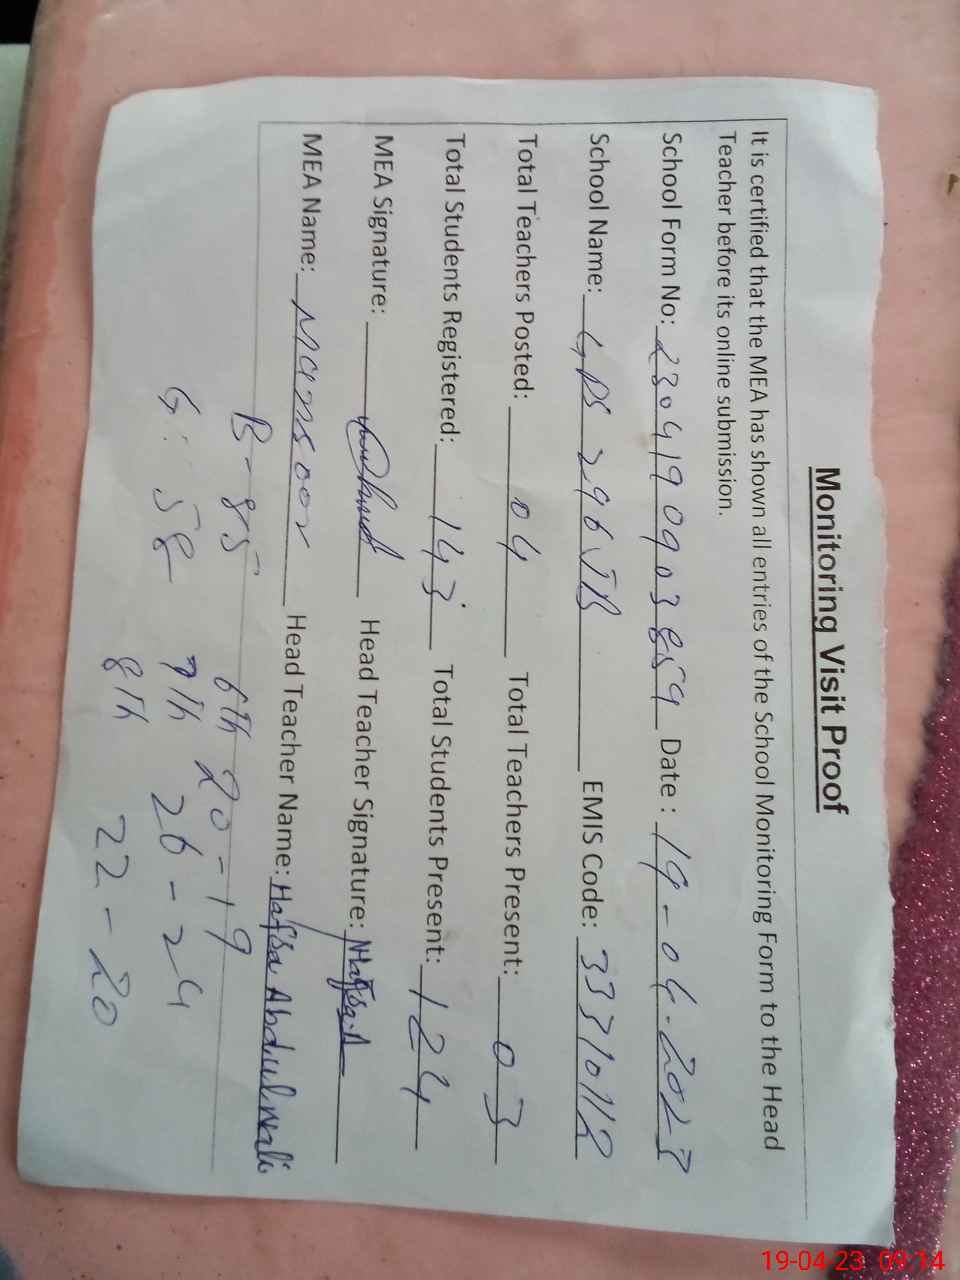 Monitoring Visit Proof
It is certified that the MEA has shown all entries of the School Monitoring Form to the Head
Teacher before its online submission.
School Form No: 2304190903859 Date : 19-04-2023
School Name: GPS 296 JB EMIS Code: 33310112
Total Teachers Posted: 04 Total Teachers Present: 03
Total Students Registered: 143 Total Students Present: 124
MEA Signature: Head Teacher Signature: Hafsa.A
MEA Name: Mansoor Head Teacher Name: Hafsa Abdul wali
B - 85 6th 20-19
G: 58 7th 26-24
8th 22-20
19-04-23 09:14